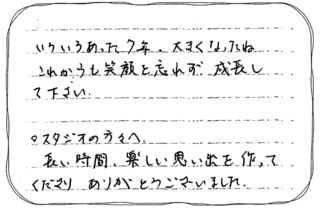 いろいろあった7年。大きくなったね
これからも笑顔を忘れず 成長し
て下さい。
○スタジオの方々へ
長い時間、楽しい思い出を作って
くださり ありがとうございました。